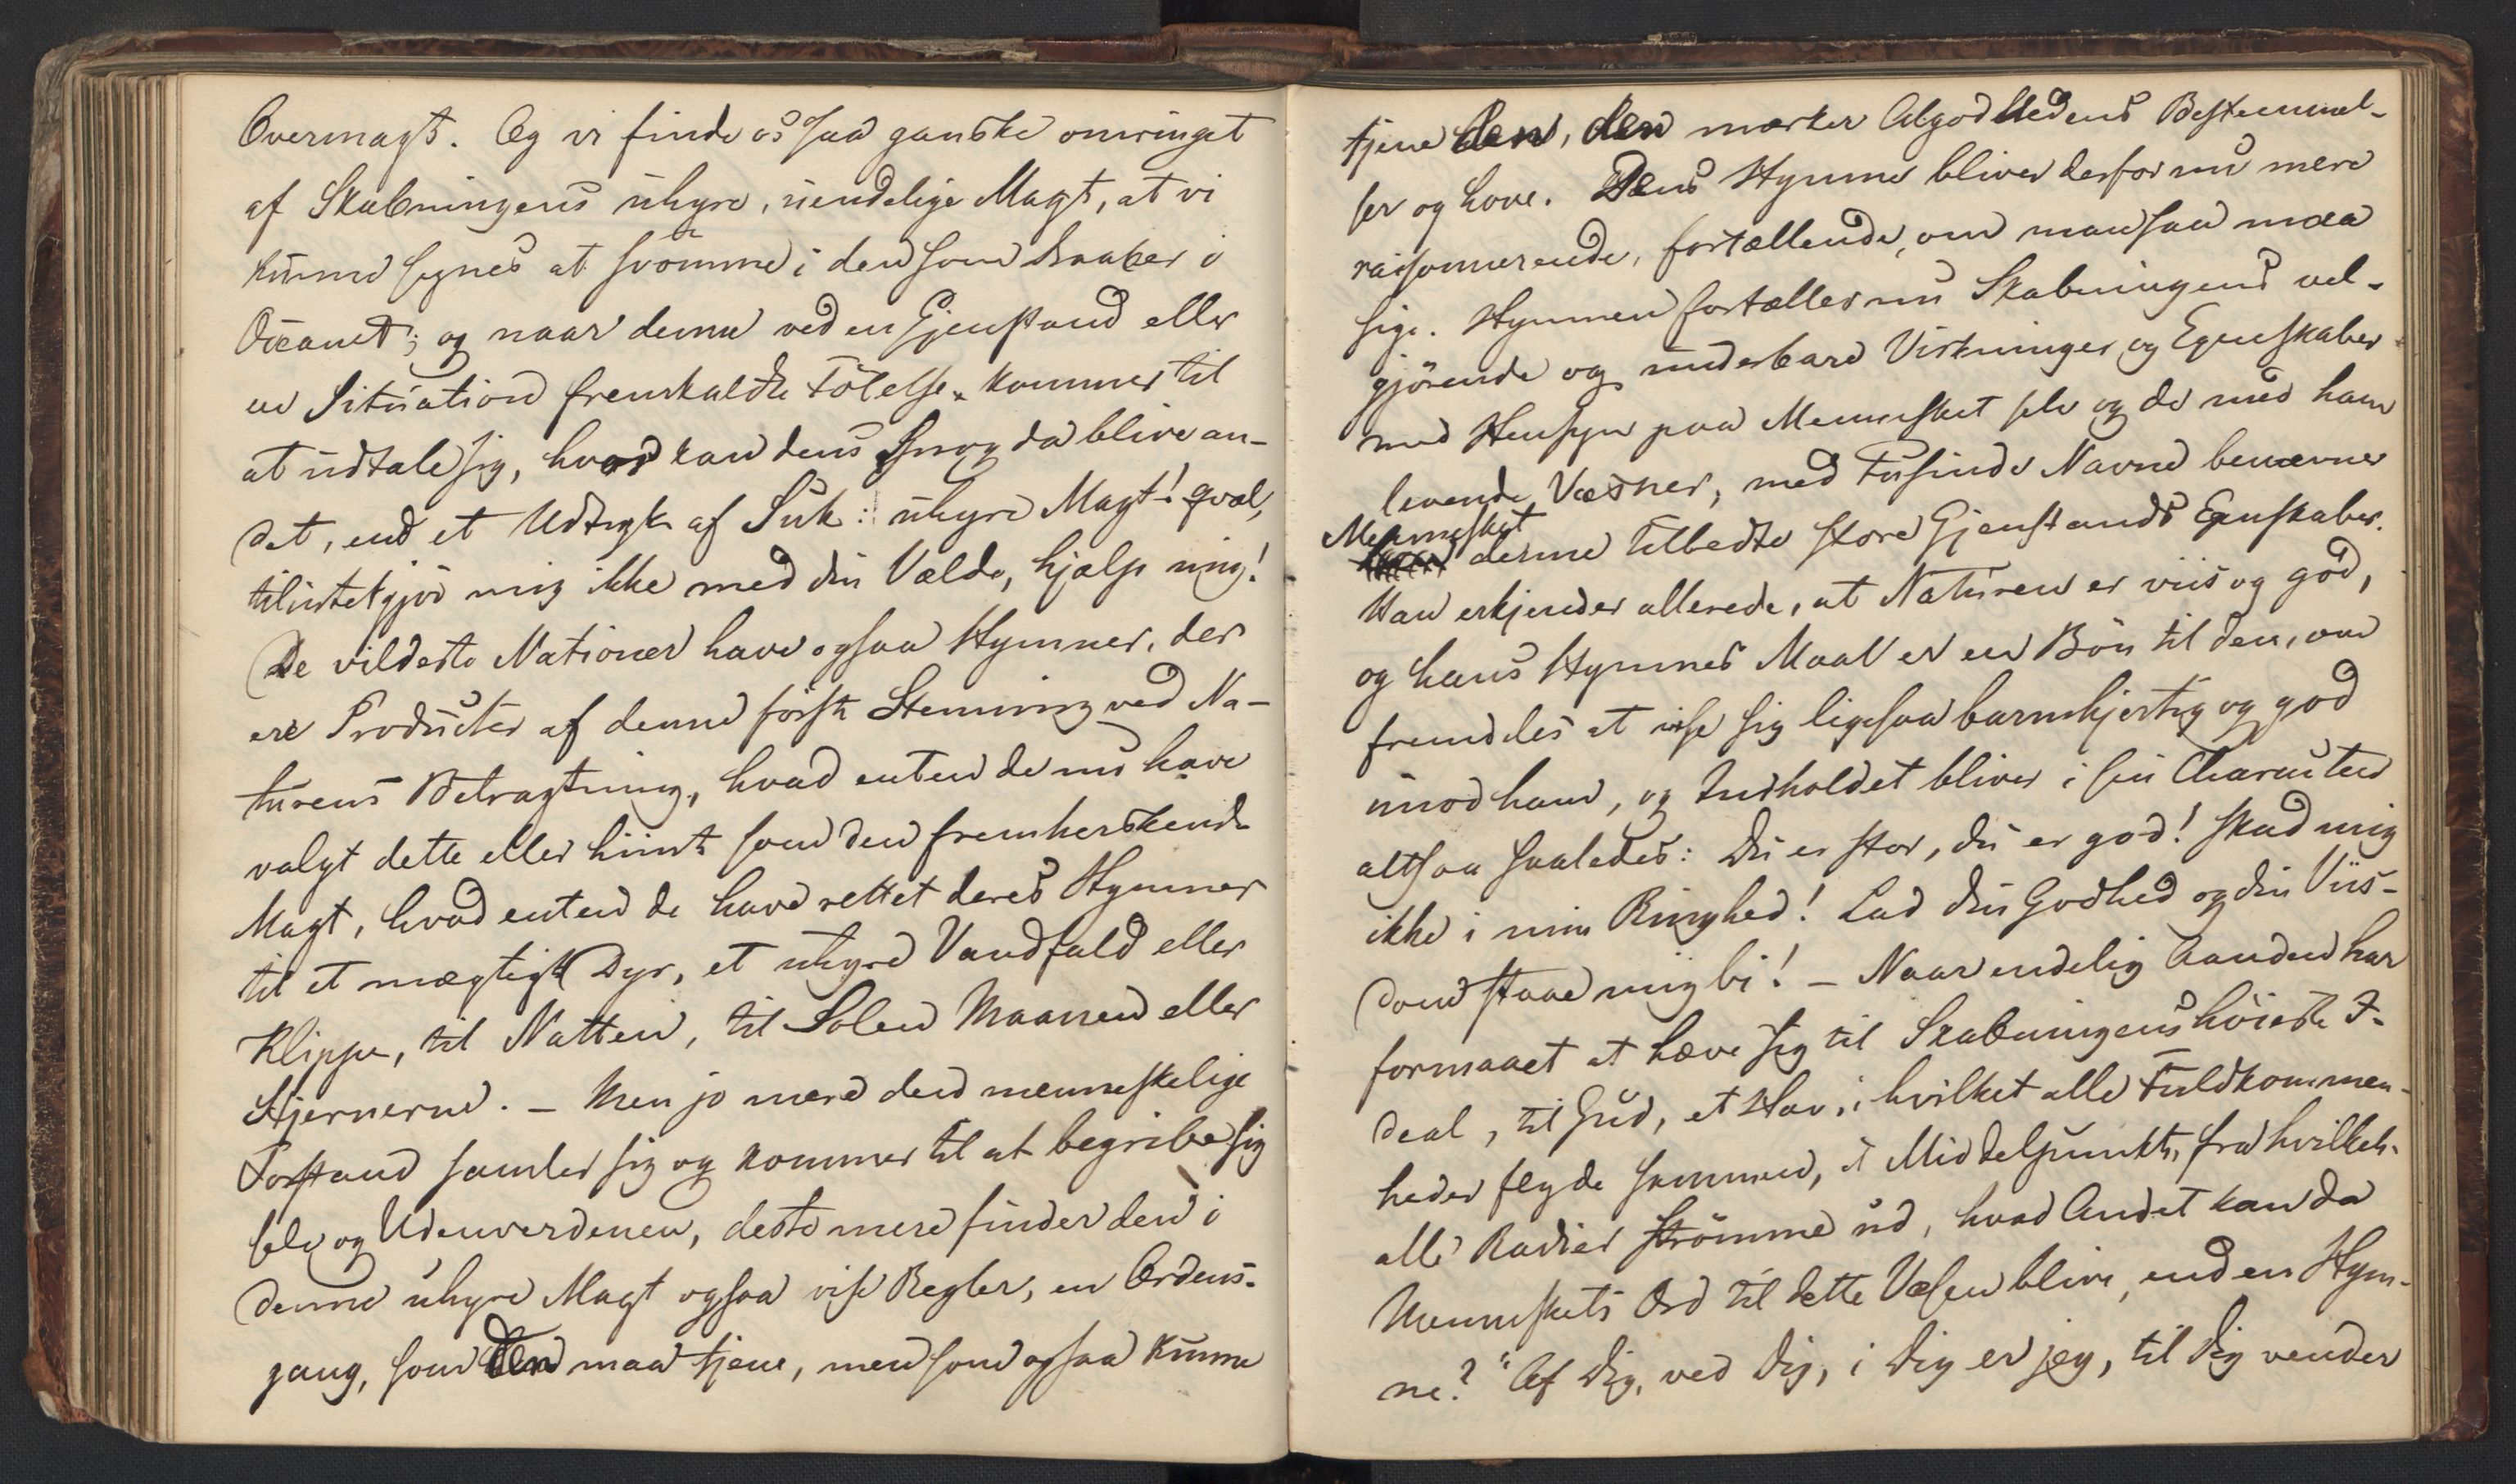 Overmagt. Og vi finde os saa ganske omringet
af Skabningens uhyre, uendelige Magt, at vi
kunne synes at svömme i den som Draaber i
Oceanet; og naar denne ved en Gjenstand eller
en Situation fremkaldte Fölelse kommer til
at udtale sig, hvad kan dens Sprog da blive an-
det, end et Udtryk af Suk: uhyre Magt! qvæl,
tilintetgjör mig ikke med din Vælde, hjælp mig!
De vildeste Nationer have ogsaa Hymner, der
ere Producter af denne förste Stemning ved Na-
turens Betragtning, hvad enten de nu have
valgt dette eller hiint som den fremherskende
Magt, hvad enten de have rettet deres Hymner
til et mægtigt Dyr, et uhyre Vandfald eller
Klippe, til Natten, til Solen Maanen eller
Stjernerne. – Men jo mere den menneskelige
Forstand samler sig og kommer til at begribe sig
selv og Udenverdenen, desto mere finder den i
denne uhyre Magt ogsaa vise Regler, en Ordens-
gang, som den maa tjene, men som ogsaa kunne
tjene den, den mærker Algodhedens Bestemmel-
ser og Love. Dens Hymne bliver derfor nu mere
raisonnerende, fortællende, om man saa maa
sige. Hymnen fortæller nu Skabningens vel-
gjörende og underbare Virkninger og Egenskaber
med Hensyn paa Mennesket selv og de med ham
levende Væsner, med tusinde Navne benævner
Mennesket
denne tilbedte store Gjenstands Egenskaber.
Han erkjender allerede, at Naturen er viis og god,
og hans Hymnes Maal er en Bön til den, om
fremdeles at vise sig ligesaa barmhjertig og god
imod ham, og Indholdet bliver i sin Character
altsaa saaledes: Du er stor, du er god! skad mig
ikke i min Ringhed! Lad din Godhed og din Viis-
dom staae mig bi! – Naar endelig Aanden har
formaaet at hæve sig til Skabningens höieste I-
deal, til Gud, et Hav, i hvilket alle Fuldkommen-
heder flyde sammen, et Middelpunkt, fra hvilket
alle Radier strömme ud, hvad Andet kan da
Menneskets Ord til dette Væsen blive, end en Hym-
ne? "Af Dig, ved Dig, i Dig er jeg, til Dig vender